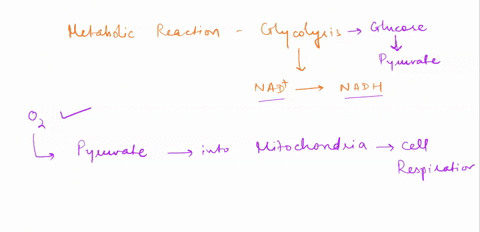 Metabolic Reaction - Glycolysis → Glucose
Pyruvate
NAD+ → NADH
O2 ✓
Pyruvate → into Mitochondria → cell
Respiration